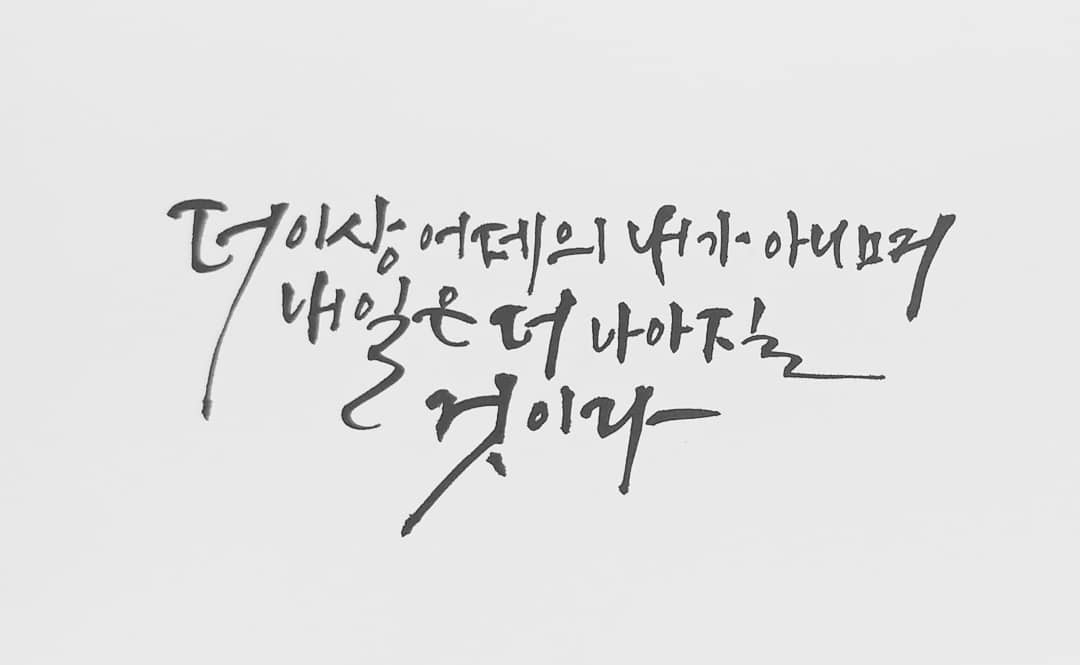 더이상 어제의 내가 아니며
내일은 더 나아질
것이다